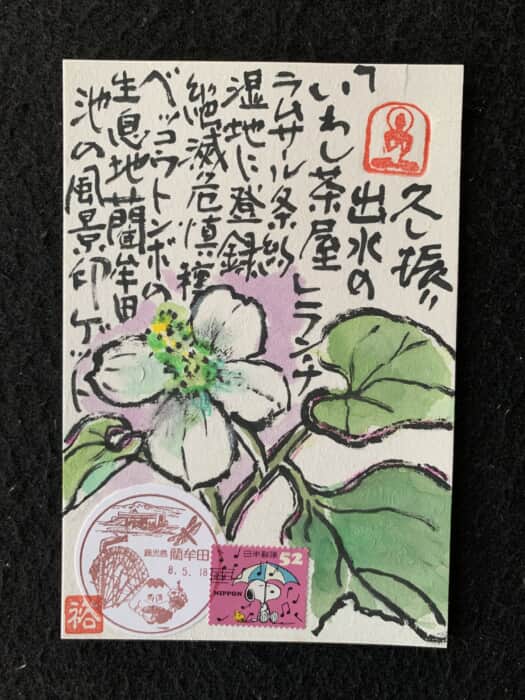 久し振り
出水の
「いわし茶屋」ランチ
ラムサール条約
湿地に登録
絶滅危惧種
ベッコウトンボの
生息地藺牟田
池の風景印ゲット
鹿児島 藺牟田
8.5.18
日本郵便
52
NIPPON
裕